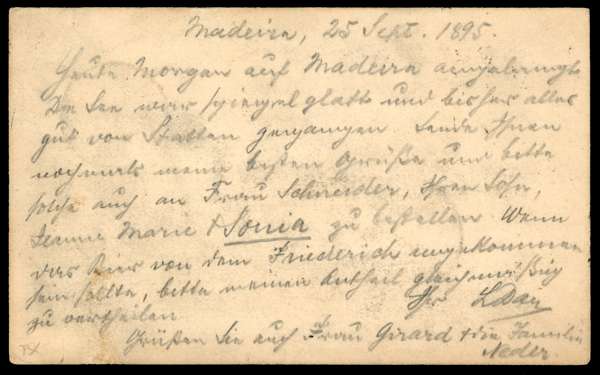 Madeira, 25 Sept. 1895.
Heute Morgen auf Madeira angelangt
Die See war spiegelglatt und bisher alles
gut von Statten gegangen. Sende Ihnen
nochmals meine besten Grüße und bitte
solche auch an Frau Schneider, Ihren Sohn,
Jeanne Marie & Sonia zu bestellen. Wenn
das Bier von dem Friederich angekommen
sein sollte, bitte meinen Antheil gleichmäßig
zu vertheilen
Ihr
Grüßen Sie auch Frau Girard & die Familie
Nader.